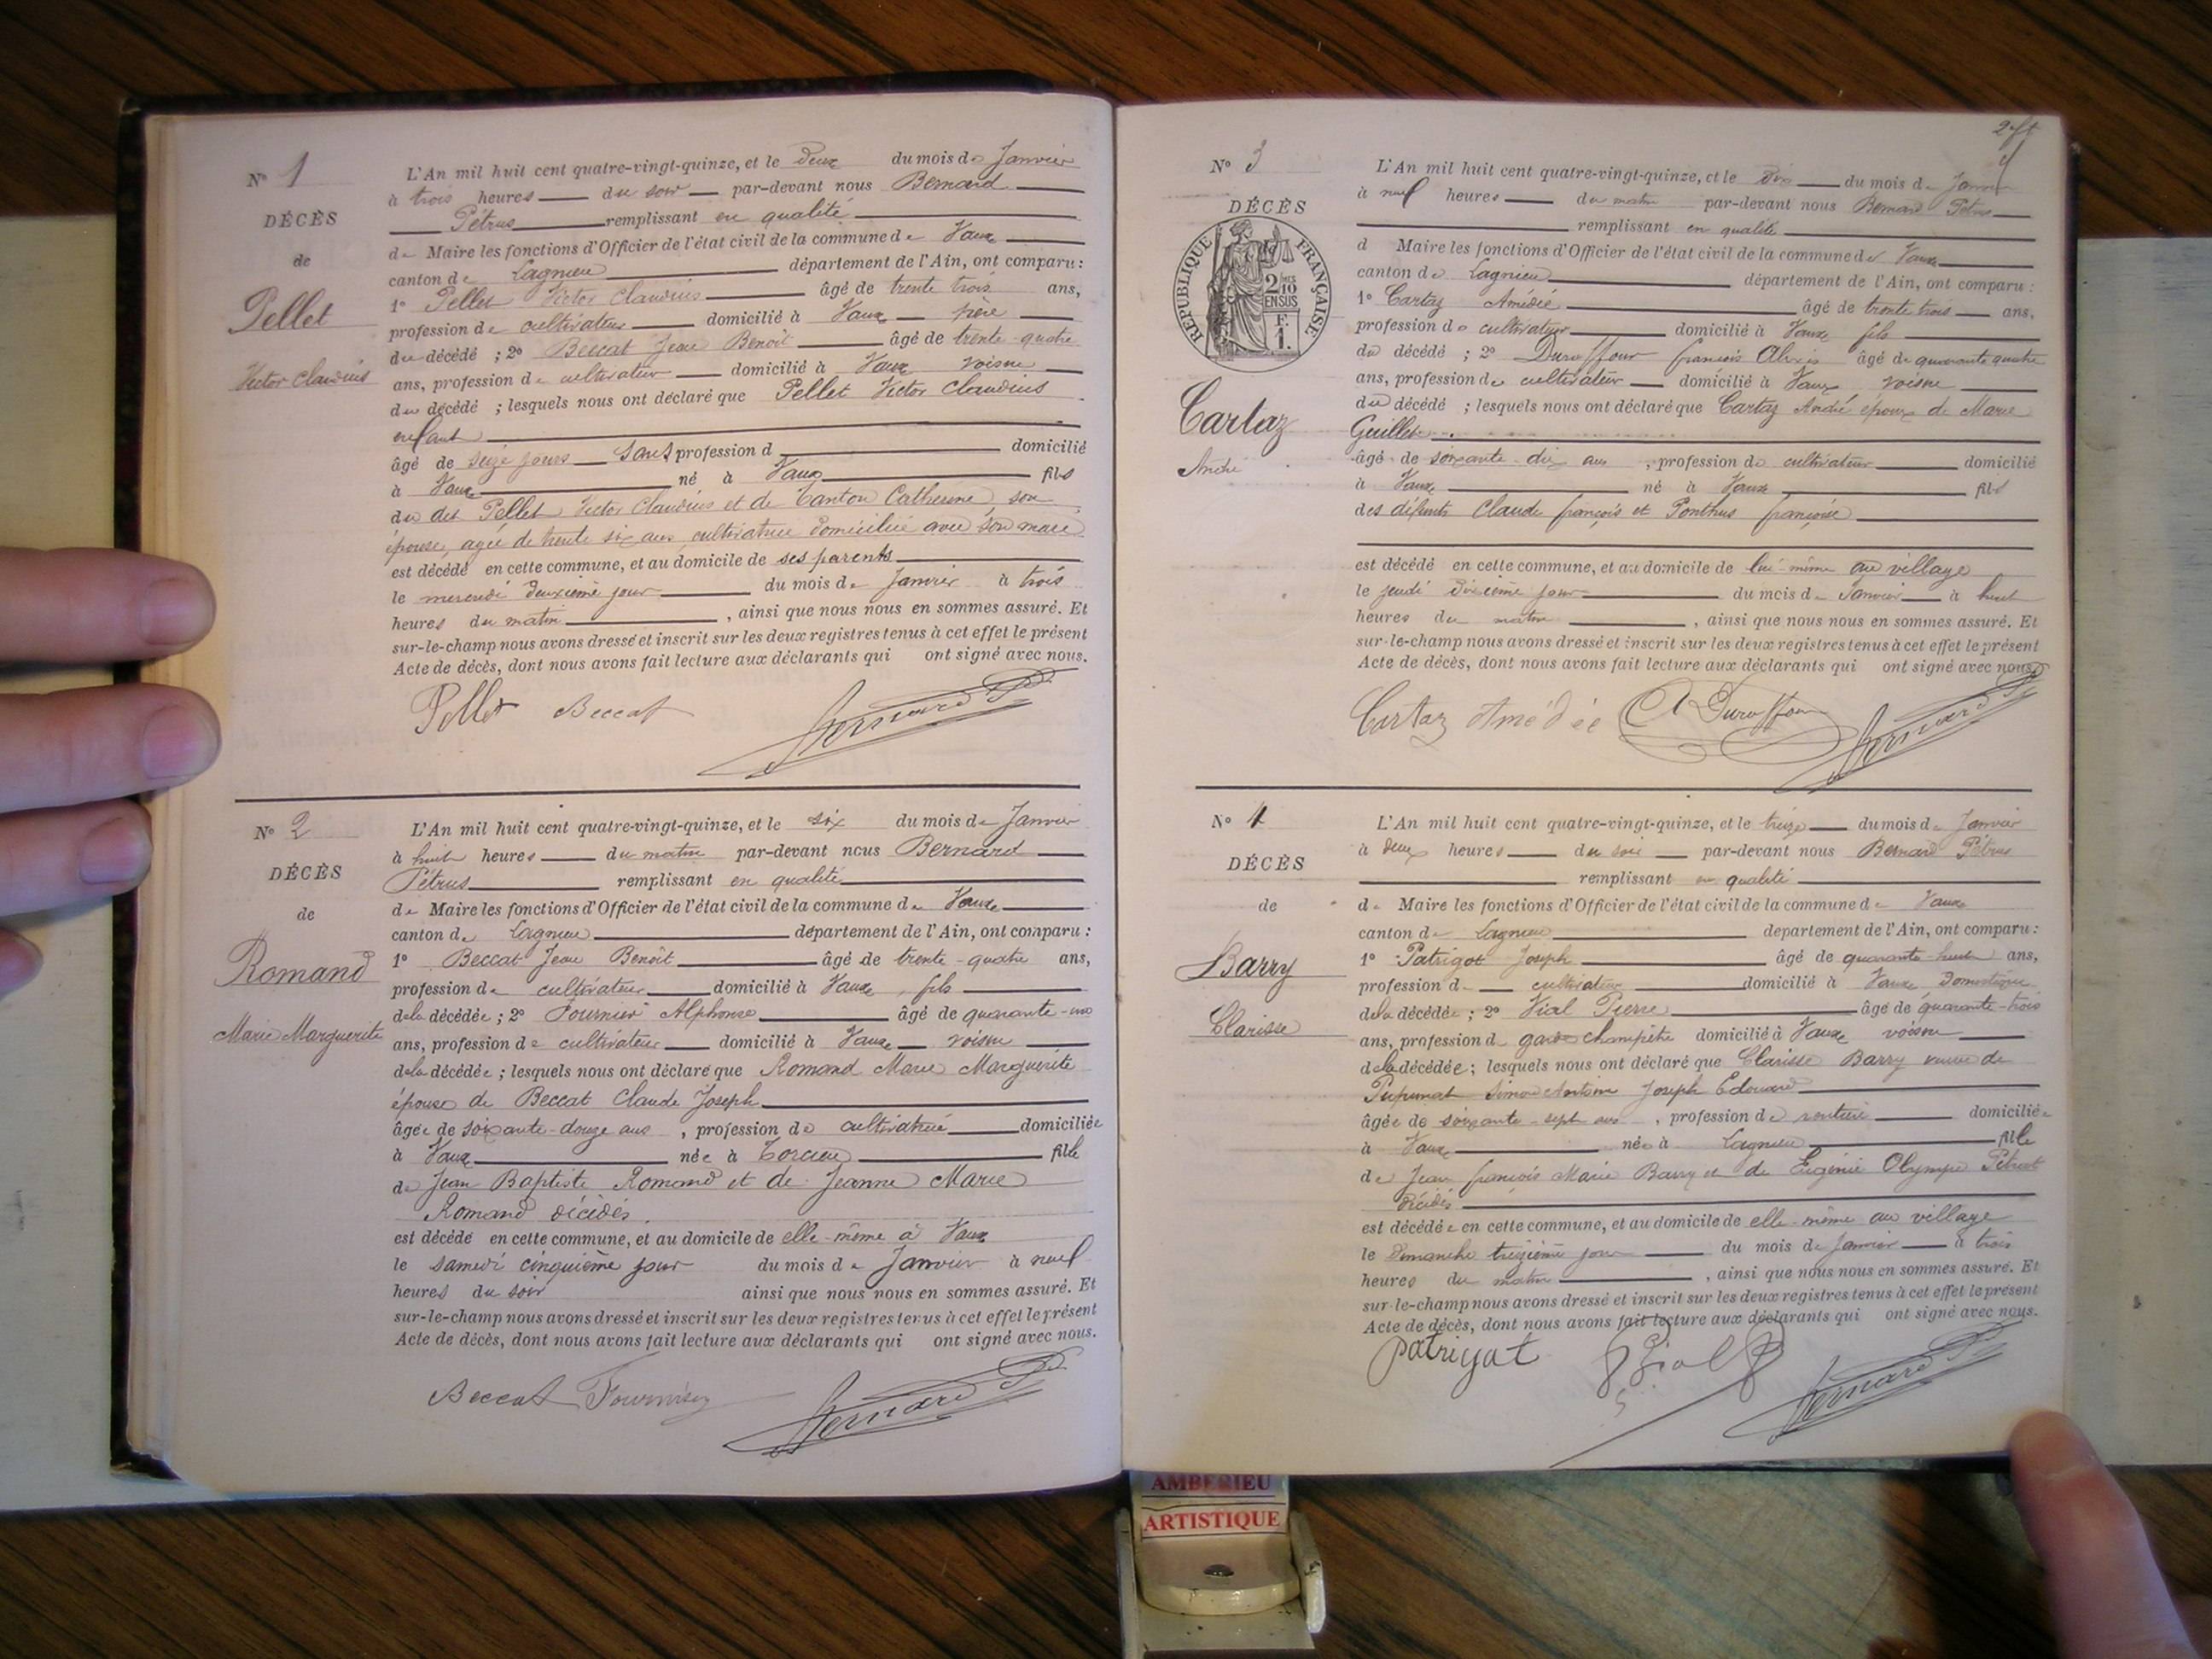 N° 1
DÉCÈS
de
Pellet
Victor Claudius
L'An mil huit cent quatre-vingt-quinze, et le deux du mois de Janvier
à trois heures du soir par-devant nous Bernard
Pétrus remplissant en qualité
de Maire les fonctions d'Officier de l'état civil de la commune de Vaux
canton de Lagnieu département de l'Ain, ont comparu :
1° Pellet Victor Claudius âgé de trente trois ans,
profession de cultivateur domicilié à Vaux père
du décédé ; 2° Beccat Jean Benoit âgé de trente-quatre
ans, profession de cultivateur domicilié à Vaux voisin
du décédé ; lesquels nous ont déclaré que Pellet Victor Claudius
enfant
âgé de seize jours sans profession d domicilié
à Vaux né à Vaux fils
du dit Pellet Victor Claudius et de Tanton Catherine, son
épouse, agée de trente six ans, cultivatrice domiciliée avec son mari
est décédé en cette commune, et au domicile de ses parents
le mercredi deuxième jour du mois de Janvier à trois
heures du matin, ainsi que nous nous en sommes assuré. Et
sur-le-champ nous avons dressé et inscrit sur les deux registres tenus à cet effet le présent
Acte de décès, dont nous avons fait lecture aux déclarants qui ont signé avec nous.
Pellet Beccat Bernard P
N° 2
DÉCÈS
de
Romand
Marie Marguerite
L'An mil huit cent quatre-vingt-quinze, et le six du mois de Janvier
à huit heures du matin par-devant nous Bernard
Pétrus remplissant en qualité
de Maire les fonctions d'Officier de l'état civil de la commune de Vaux
canton de Lagnieu département de l'Ain, ont comparu :
1° Beccat Jean Benoit âgé de trente-quatre ans,
profession de cultivateur domicilié à Vaux, fils
de la décédée ; 2° Fournier Alphonse âgé de quarante-un
ans, profession de cultivateur domicilié à Vaux voisin
de la décédée ; lesquels nous ont déclaré que Romand Marie Marguerite
épouse de Beccat Claude Joseph
âgée de soixante-douze ans, profession de cultivatrice domiciliée
à Vaux née à Torcieu fille
de Jean Baptiste Romand et de Jeanne Marie
Romand décédés.
est décédé en cette commune, et au domicile de elle-même à Vaux
le samedi cinquième jour du mois de Janvier à neuf
heures du soir ainsi que nous nous en sommes assuré. Et
sur-le-champ nous avons dressé et inscrit sur les deux registres tenus à cet effet le présent
Acte de décès, dont nous avons fait lecture aux déclarants qui ont signé avec nous.
Beccat Fournier Bernard P
N° 3
DÉCÈS
RÉPUBLIQUE FRANÇAISE
2/10 EN SUS
F.
1.
Cartaz
André
L'An mil huit cent quatre-vingt-quinze, et le dix du mois de Janvier
à neuf heures du matin par-devant nous Bernard Pétrus
remplissant en qualité
d Maire les fonctions d'Officier de l'état civil de la commune de Vaux
canton de Lagnieu département de l'Ain, ont comparu :
1° Cartaz Amédée âgé de trente trois ans,
profession de cultivateur domicilié à Vaux fils
du décédé ; 2° Duraffour françois Alexis âgé de quarante quatre
ans, profession de cultivateur domicilié à Vaux voisin
du décédé ; lesquels nous ont déclaré que Cartaz André époux de Marie
Guillet
âgé de soixante-dix ans, profession de cultivateur domicilié
à Vaux né à Vaux fils
des défunts Claude françois et Ponthus françoise
est décédé en cette commune, et au domicile de lui-même au village
le jeudi dixième jour du mois de Janvier à huit
heures du matin, ainsi que nous nous en sommes assuré. Et
sur-le-champ nous avons dressé et inscrit sur les deux registres tenus à cet effet le présent
Acte de décès, dont nous avons fait lecture aux déclarants qui ont signé avec nous.
Cartaz Amédée A Duraffour Bernard P
N° 4
DÉCÈS
de
Barry
Clarisse
L'An mil huit cent quatre-vingt-quinze, et le treize du mois de Janvier
à deux heures du soir par-devant nous Bernard Pétrus
remplissant en qualité
de Maire les fonctions d'Officier de l'état civil de la commune de Vaux
canton de Lagnieu département de l'Ain, ont comparu :
1° Patrigot Joseph âgé de quarante-huit ans,
profession d cultivateur domicilié à Vaux Domestique
de la décédée ; 2° Vial Pierre âgé de quarante-trois
ans, profession d garde champêtre domicilié à Vaux voisin
de la décédée ; lesquels nous ont déclaré que Clarisse Barry veuve de
Pupunat Simon Antoine Joseph Edouard
âgée de soixante-sept ans, profession de rentière domiciliée
à Vaux née à Lagnieu fille
de Jean françois Marie Barry et de Eugénie Olympe
décédés
est décédée en cette commune, et au domicile de elle-même au village
le Dimanche treizième jour du mois de Janvier à trois
heures du matin, ainsi que nous nous en sommes assuré. Et
sur-le-champ nous avons dressé et inscrit sur les deux registres tenus à cet effet le présent
Acte de décès, dont nous avons fait lecture aux déclarants qui ont signé avec nous.
Patrigot Vial Bernard P
AMBERIEU
ARTISTIQUE